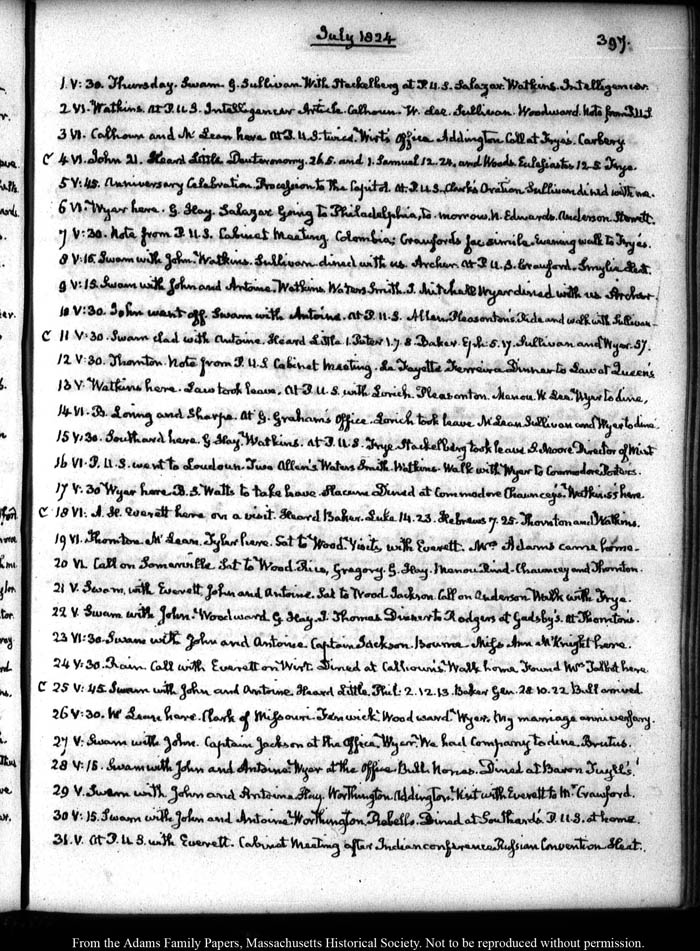 July 1824
397.
1 V: 30. Thursday. Swam. G. Sullivan. With Stackelberg at P.U.S. Salazar. Watkins. Intelligencer.
2 VI. Watkins. At P.U.S. Intelligencer Article. Calhoun. W. Lee. Sullivan. Woodward. Note from P.U.S
3 VI. Calhoun and Mc Lean here. At P.U.S. twice. Wirt's Office. Addington. Call at Frye's. Carbery
C 4 VI. John 21. Heard Little Deuteronomy. 26 5. and 1. Samuel 12. 24. and Woods. Eclesiastes 12. 5 Frye.
5 V: 45. Anniversary Celebration. Procession to the Capitol. At P.U.S. Clark's Oration Sullivan dined with me.
6 VI. Wyer here. G. Hay. Salazar Going to Philadelphia, to-morrow. N. Edwards. Anderson.
7 V: 30. Note from P.U.S. Cabinet Meeting. Colombia; Crawford's fac simile. Evening walk to Frye's.
8 V: 15. Swam with John. Watkins. Sullivan dined with us. Archer. At P.U.S. Crawford. Smylie.
9 V: 15. Swam with John and Antoine. Watkins Waters Smith. J. Mitchell Wyer dined with us Archer.
10 V: 30. John went off. Swam with Antoine. At P.U.S. Allen. Pleasonton's. Ride and walk with Sullivan
C 11 V: 30. Swam clad with Antoine. Heard Little 1. Peter 1. 7. 8. Baker. Eph: 5. 17. Sullivan and Wyer. 57.
12 V: 30. Thornton. Note from P.U.S Cabinet Meeting. La Fayette Ferreira Dinner to Law at Queen's
13 V. Watkins here. Law took leave. At P.U.S. with Lorich. Pleasonton. Manou. W. Lee. Wyer to dine,
14 VI. B. Loring and Sharpe. At G. Graham's Office. Lorich took leave McLean Sullivan and Wyer to dine
15 V: 30. Southard here. G Hay. Watkins. At P.U.S. Frye. Stackelberg took leave S. Moore Director of Mint
16 VI. P.U.S. went to Loudoun. Two Allen's Waters Smith. Watkins. Walk with Wyer to Commodore Porter's.
17 V: 30 Wyer here. B. S. Watts to take leave. Slacum Dined at Commodore Chauncey's. Watkins's here.
C 18 VI: A. H. Everett here on a visit. Heard Baker. Luke 14. 23. Hebrews 7. 25. Thornton and Watkins.
19 VI. Thornton. Mc Lean. Tyler here. Sat to Wood. Visits, with Everett. Mrs Adams came home.
20 VI. Call on Somerville. Sat to Wood. Rice, Gregory. G. Hay. Manou. Rind. Chauncey and Thornton.
21 V. Swam, with Everett John and Antoine. Sat to Wood. Jackson. Call on Anderson Walk with Frye.
22 V. Swam with John. Woodward. G Hay. J. Thomas Dinner to Rodgers at Gadsby's. At Thornton's.
23 VI: 30. Swam with John and Antoine. Captain Jackson. Bourne. Miss Ann McKnight here.
24 V: 30. Rain. Call with Everett on Wirt. Dined at Calhoun's. Walk home. Found Mrs Talbot here.
C 25 V: 45. Swam with John and Antoine. Heard Little. Phil: 2. 12. 13. Baker Gen. 28. 10. 22. Bull arrived.
26 V: 30. Mc Leane here. Clark of Missouri. Fenwick. Woodward. Wyer. My marriage anniversary.
27 V: Swam with John. Captain Jackson at the Office. Wyer. We had Company to dine. Brutus.
28 V: 15. Swam with John and Antoine. Wyer at the Office. Bull. Dined at Baron Tuyll's.
29 V. Swam with John and Antoine. Hay. Worthington. Addington. Visit with Everett to Mr Crawford.
30 V: 15. Swam with John and Antoine. Worthington. Rebello. Dined at Southard's. P.U.S. at home.
31. V. At P.U.S. with Everett. Cabinet Meeting after Indian conference. Russian Convention
From the Adams Family Papers, Massachusetts Historical Society. Not to be reproduced without permission.